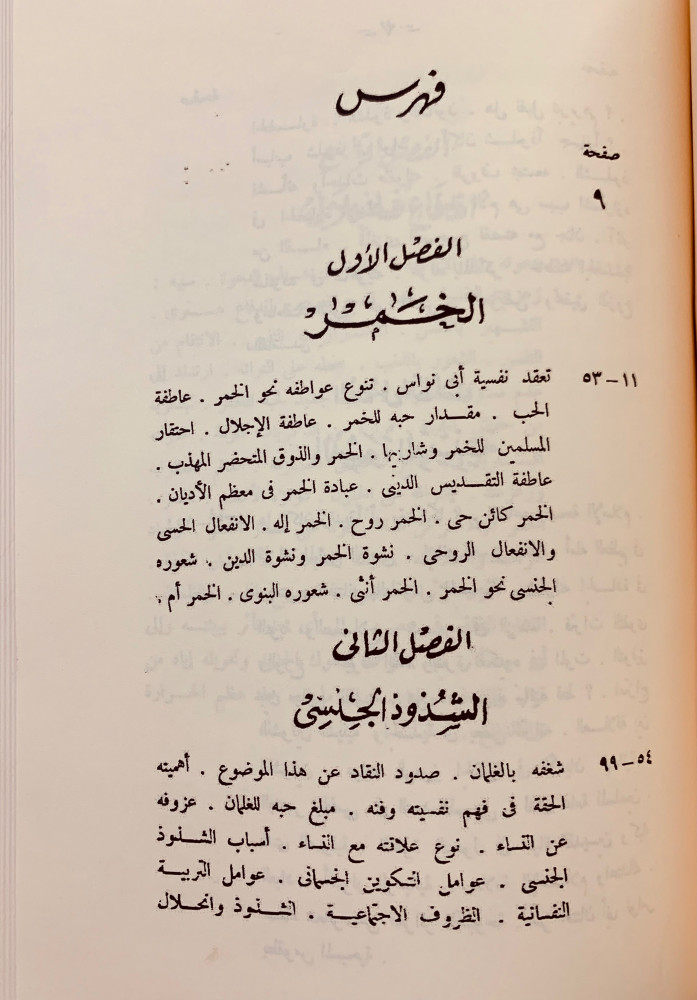 فهرس
صفحة
٩
الفصل الأول
الخمر
١١-٥٣ تعقد نفسية أبى نواس . تنوع عواطفه نحو الخمر . عاطفة
الحب . مقدار حبه للخمر . عاطفة الإجلال . احتقار
المسلمين للخمر وشاربيها . الخمر والذوق المتحضر المهذب .
عاطفة التقديس الدينى . عبادة الخمر فى معظم الأديان .
الخمر كائن حى . الخمر روح . الخمر إله . الانفعال الحسى
والانفعال الروحى . نشوة الخمر ونشوة الدين . شعوره
الجنسى نحو الخمر . الخمر أنثى . شعوره البنوى . الخمر أم .
الفصل الثانى
الشذوذ الجنسى
٥٤-٩٩ شغفه بالغلمان . صدود النقاد عن هذا الموضوع . أهميته
الحقة فى فهم نفسيته وفنه . مبلغ حبه للغلمان . عزوفه
عن النساء . نوع علاقته مع النساء . أسباب الشذوذ
الجنسى . عوامل التكوين الجسمانى . عوامل التربية
النفسانية . الظروف الاجتماعية . الشذوذ وانحلال